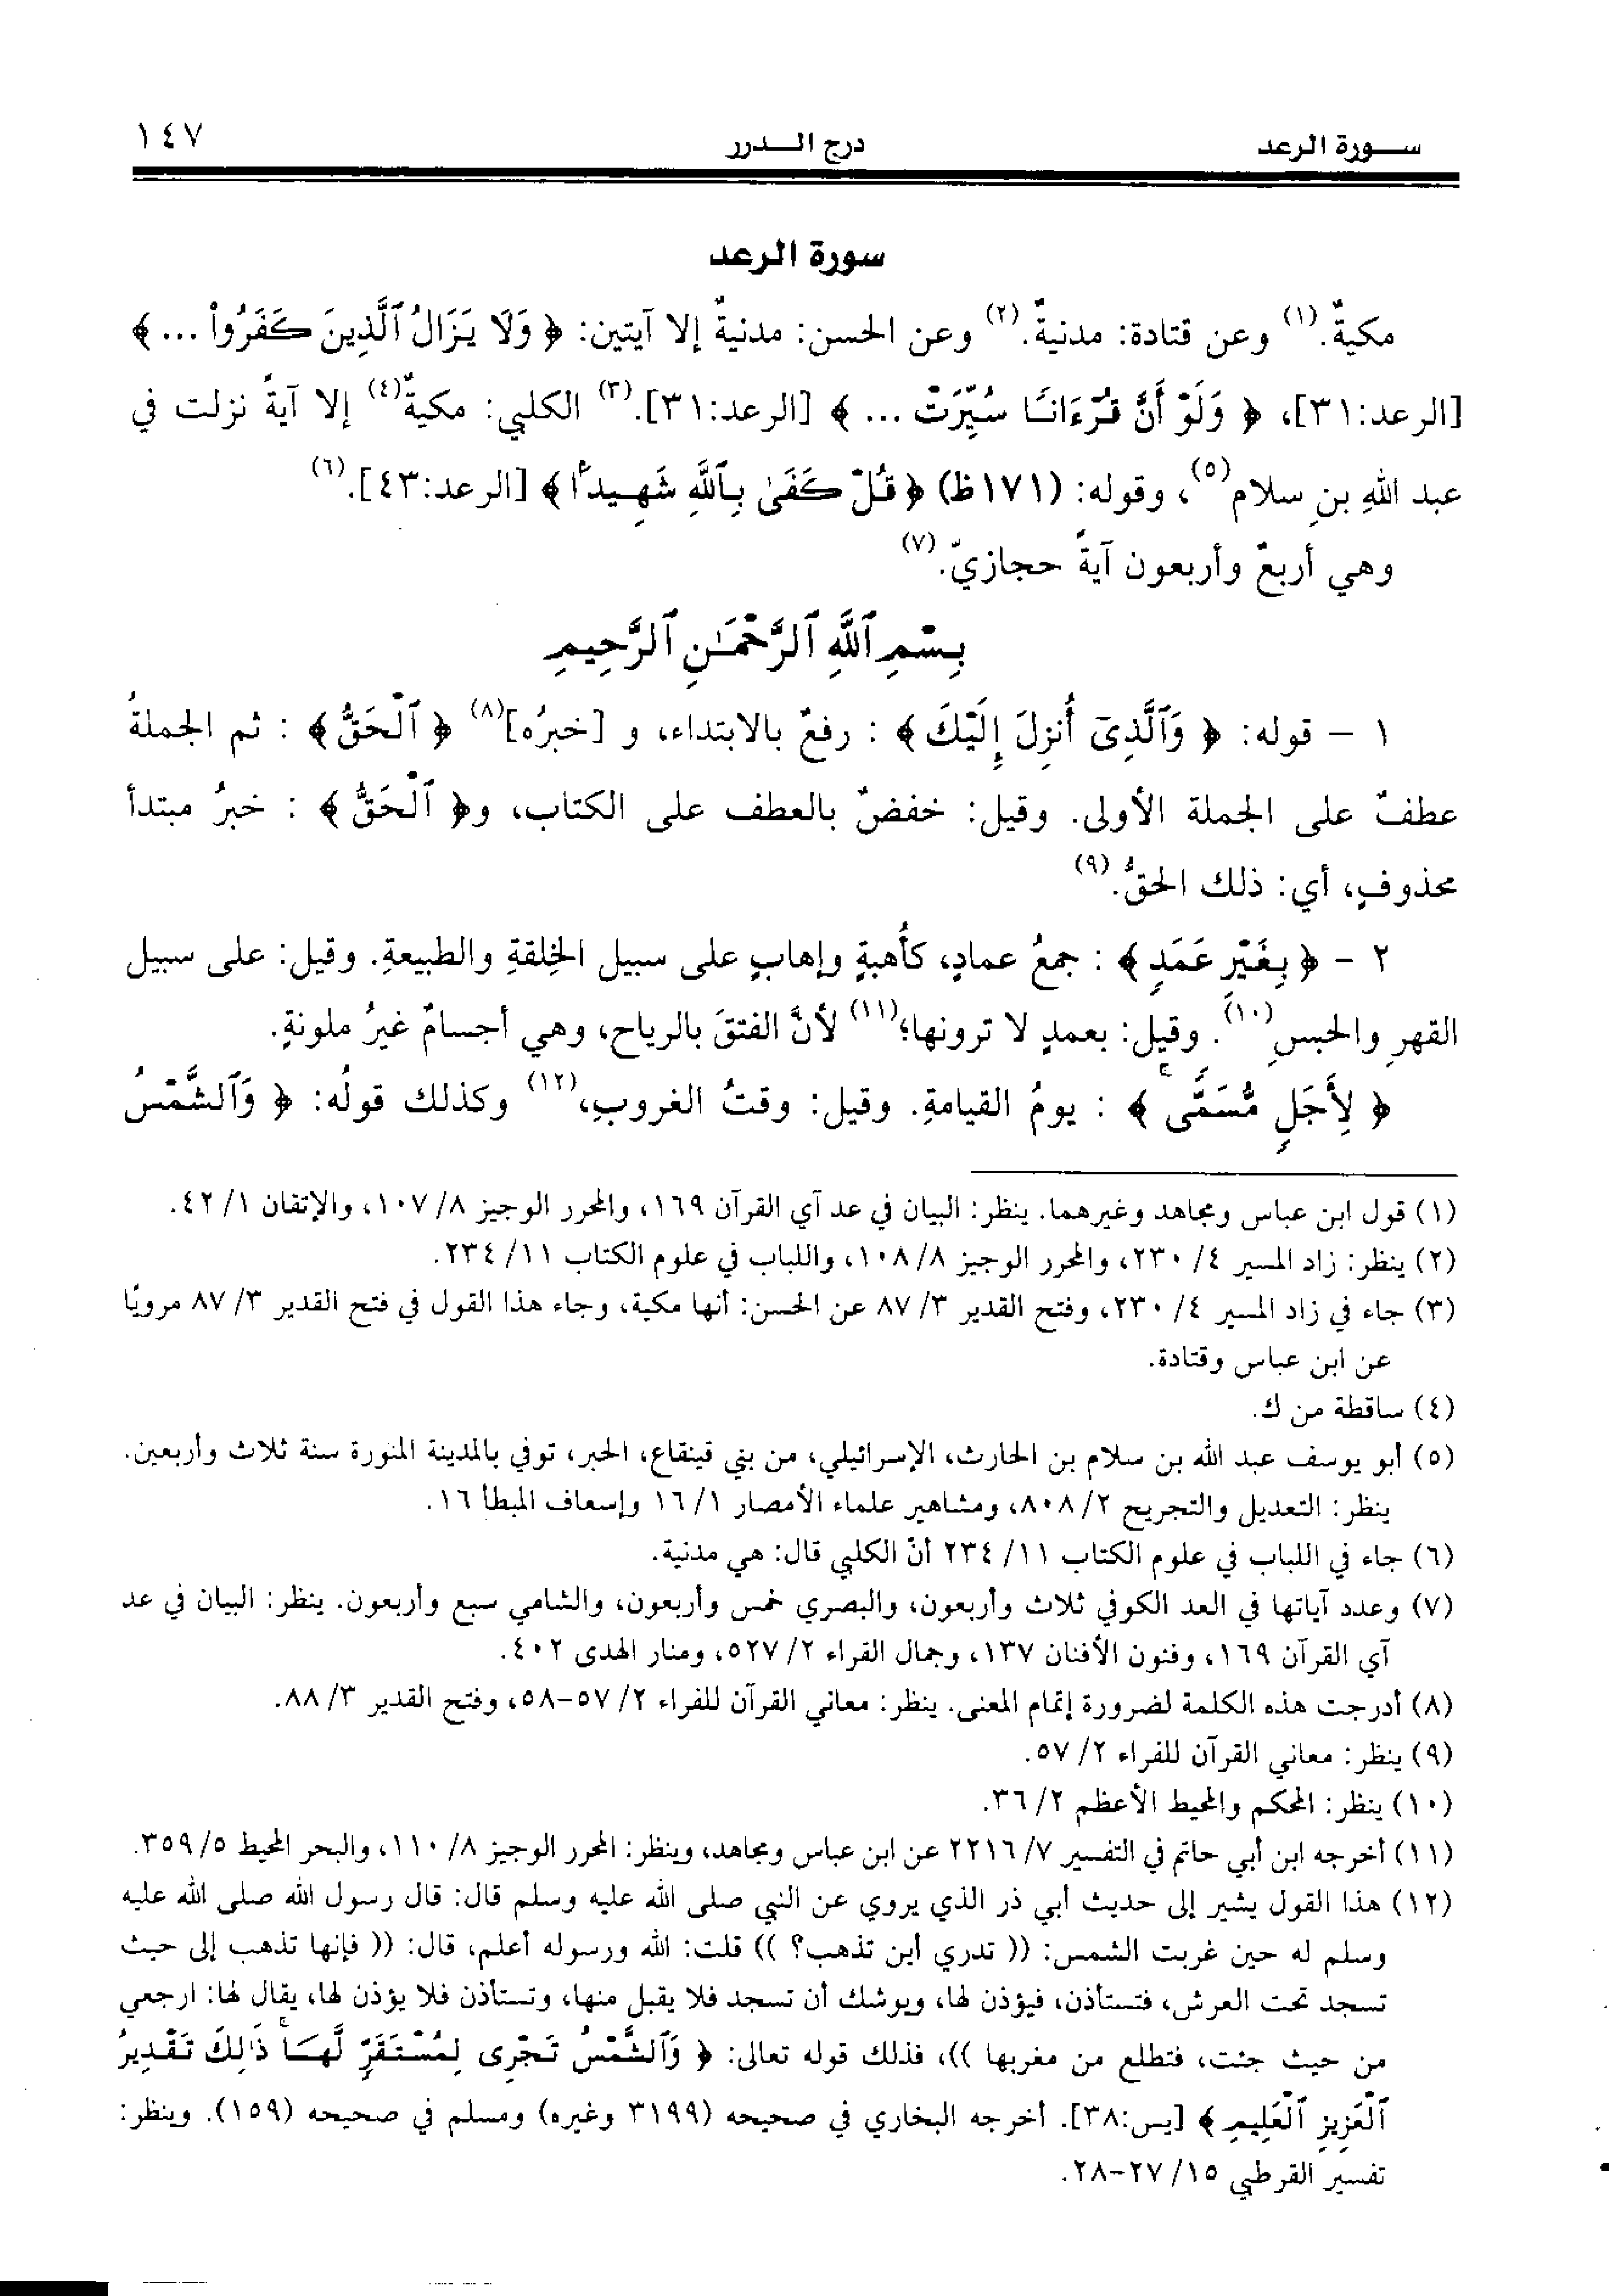 سـورة الرعد درج الـدرر ١٤٧
سورة الرعد
مكيةٌ.(١) وعن قتادة: مدنيةٌ.(٢) وعن الحسن: مدنيةٌ إلا آيتين: ﴿ وَلَا يَزَالُ ٱلَّذِينَ كَفَرُواْ ... ﴾
[الرعد:٣١]، ﴿ وَلَوْ أَنَّ قُرْءَانًا سُيِّرَتْ ... ﴾ [الرعد:٣١].(٣) الكلبي: مكيةٌ(٤) إلا آيةً نزلت في
عبد اللهِ بنِ سلام(٥)، وقوله: (١٧١ظ) ﴿ قُلْ كَفَىٰ بِٱللَّهِ شَهِيدًۢا ﴾ [الرعد:٤٣].(٦)
وهي أربعٌ وأربعون آيةً حجازيّ.(٧)
بِسْمِ ٱللَّهِ ٱلرَّحْمَـٰنِ ٱلرَّحِيمِ
١ – قوله: ﴿ وَٱلَّذِىٓ أُنزِلَ إِلَيْكَ ﴾ : رفعٌ بالابتداء، و [خبرُه](٨) ﴿ ٱلْحَقُّ ﴾ : ثم الجملةُ
عطفٌ على الجملة الأولى. وقيل: خفضٌ بالعطف على الكتاب، و﴿ ٱلْحَقُّ ﴾ : خبرُ مبتدأ
محذوفٍ، أي: ذلك الحقُّ.(٩)
٢ – ﴿ بِغَيْرِ عَمَدٍ ﴾ : جمعُ عمادٍ، كأُهبةٍ وإهابٍ على سبيل الخِلقةِ والطبيعةِ. وقيل: على سبيل
القهرِ والحبسِ(١٠). وقيل: بعمدٍ لا ترونها؛(١١) لأنَّ الفتقَ بالرياح، وهي أجسامٌ غيرُ ملونةٍ.
﴿ لِأَجَلٍ مُّسَمًّى ﴾ : يومُ القيامةِ. وقيل: وقتُ الغروبِ،(١٢) وكذلك قولُه: ﴿ وَٱلشَّمْسُ
(١) قول ابن عباس ومجاهد وغيرهما. ينظر: البيان في عد آي القرآن ١٦٩، والمحرر الوجيز ٨/ ١٠٧، والإتقان ١/ ٤٢.
(٢) ينظر: زاد المسير ٤/ ٢٣٠، والمحرر الوجيز ٨/ ١٠٨، واللباب في علوم الكتاب ١١/ ٢٣٤.
(٣) جاء في زاد المسير ٤/ ٢٣٠، وفتح القدير ٣/ ٨٧ عن الحسن: أنها مكية، وجاء هذا القول في فتح القدير ٣/ ٨٧ مرويًا
عن ابن عباس وقتادة.
(٤) ساقطة من ك.
(٥) أبو يوسف عبد الله بن سلام بن الحارث، الإسرائيلي، من بني قينقاع، الحبر، توفي بالمدينة المنورة سنة ثلاث وأربعين.
ينظر: التعديل والتجريح ٢/ ٨٠٨، ومشاهير علماء الأمصار ١/ ١٦ وإسعاف المبطأ ١٦.
(٦) جاء في اللباب في علوم الكتاب ١١/ ٢٣٤ أنّ الكلبي قال: هي مدنية.
(٧) وعدد آياتها في العد الكوفي ثلاث وأربعون، والبصري خمس وأربعون، والشامي سبع وأربعون. ينظر: البيان في عد
آي القرآن ١٦٩، وفنون الأفنان ١٣٧، وجمال القراء ٢/ ٥٢٧، ومنار الهدى ٤٠٢.
(٨) أدرجت هذه الكلمة لضرورة إتمام المعنى. ينظر: معاني القرآن للفراء ٢/ ٥٧-٥٨، وفتح القدير ٣/ ٨٨.
(٩) ينظر: معاني القرآن للفراء ٢/ ٥٧.
(١٠) ينظر: المحكم والمحيط الأعظم ٢/ ٣٦.
(١١) أخرجه ابن أبي حاتم في التفسير ٧/ ٢٢١٦ عن ابن عباس ومجاهد، وينظر: المحرر الوجيز ٨/ ١١٠، والبحر المحيط ٥/ ٣٥٩.
(١٢) هذا القول يشير إلى حديث أبي ذر الذي يروي عن النبي صلى الله عليه وسلم قال: قال رسول الله صلى الله عليه
وسلم له حين غربت الشمس: (( تدري أين تذهب؟ )) قلت: الله ورسوله أعلم، قال: (( فإنها تذهب إلى حيث
تسجد تحت العرش، فتستأذن، فيؤذن لها، ويوشك أن تسجد فلا يقبل منها، وتستأذن فلا يؤذن لها، يقال لها: ارجعي
من حيث جئت، فتطلع من مغربها ))، فذلك قوله تعالى: ﴿ وَٱلشَّمْسُ تَجْرِى لِمُسْتَقَرٍّ لَّهَا ۚ ذَٰلِكَ تَقْدِيرُ
ٱلْعَزِيزِ ٱلْعَلِيمِ ﴾ [يس:٣٨]. أخرجه البخاري في صحيحه (٣١٩٩ وغيره) ومسلم في صحيحه (١٥٩). وينظر:
تفسير القرطبي ١٥/ ٢٧-٢٨.